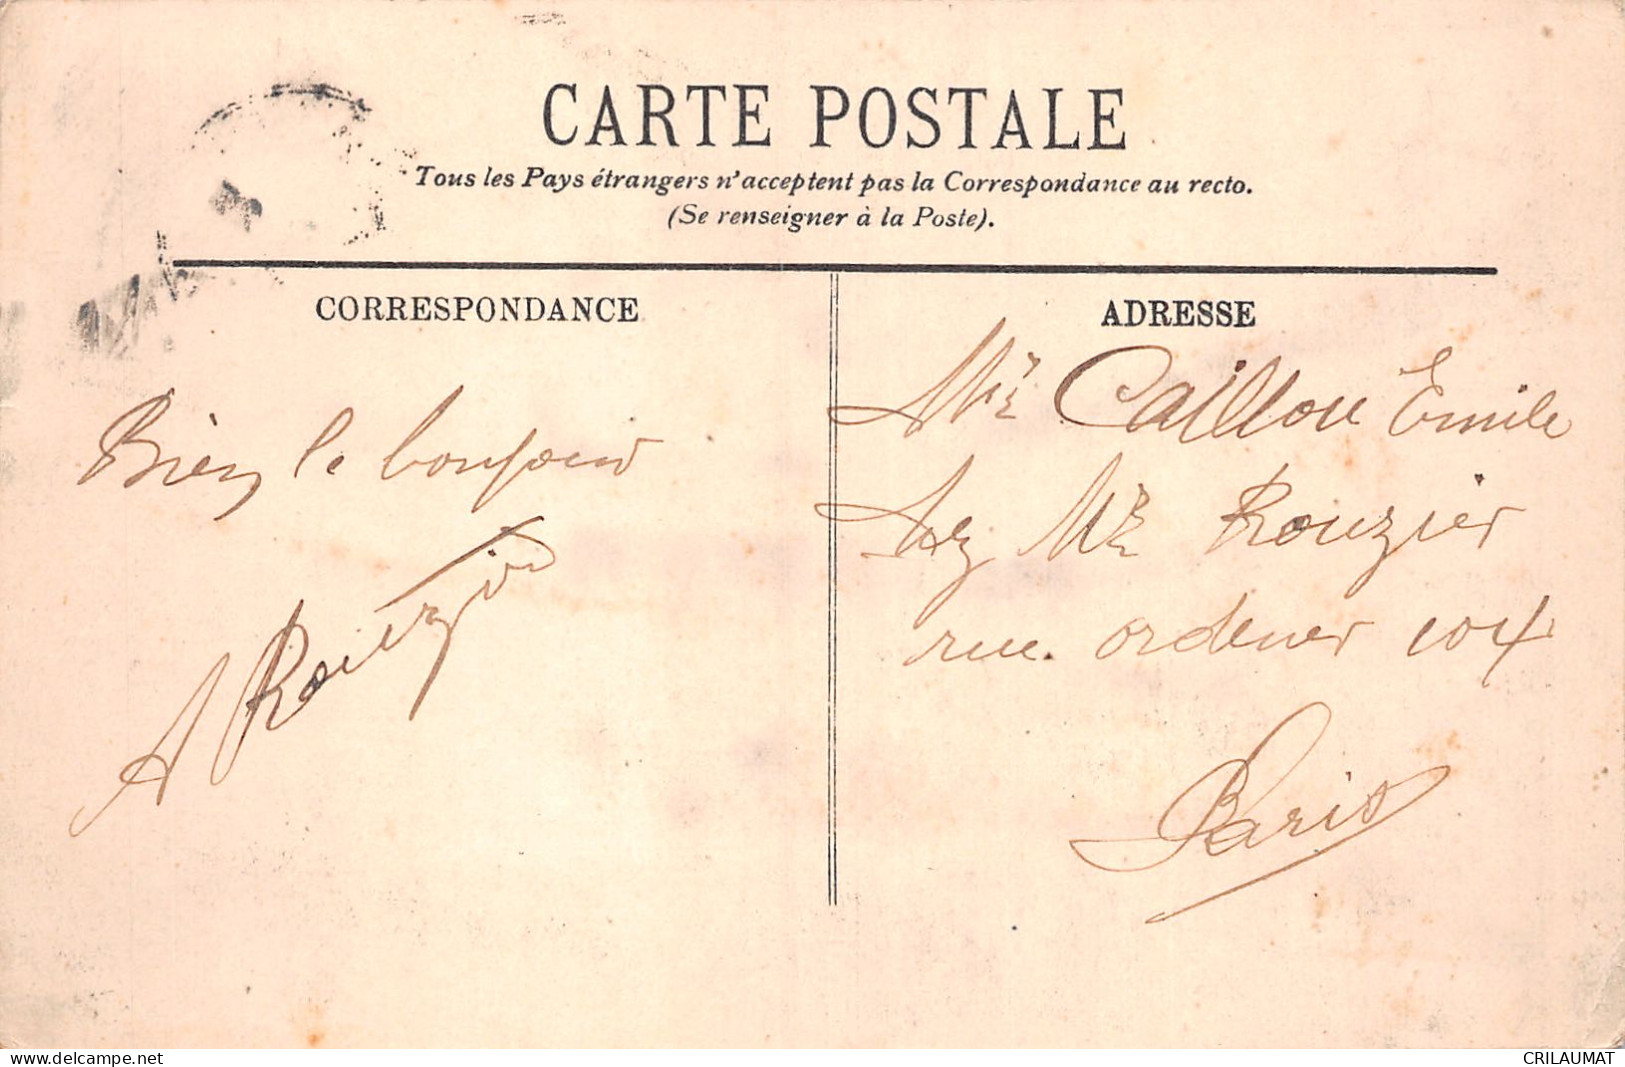 CARTE POSTALE
Tous les Pays étrangers n'acceptent pas la Correspondance au recto.
(Se renseigner à la Poste).
CORRESPONDANCE
Bien le bonjour
A Rouzier
ADRESSE
Mr Caillou Emile
Mr Rouzier
rue ordener 104
Paris
www.delcampe.net
CRILAUMAT